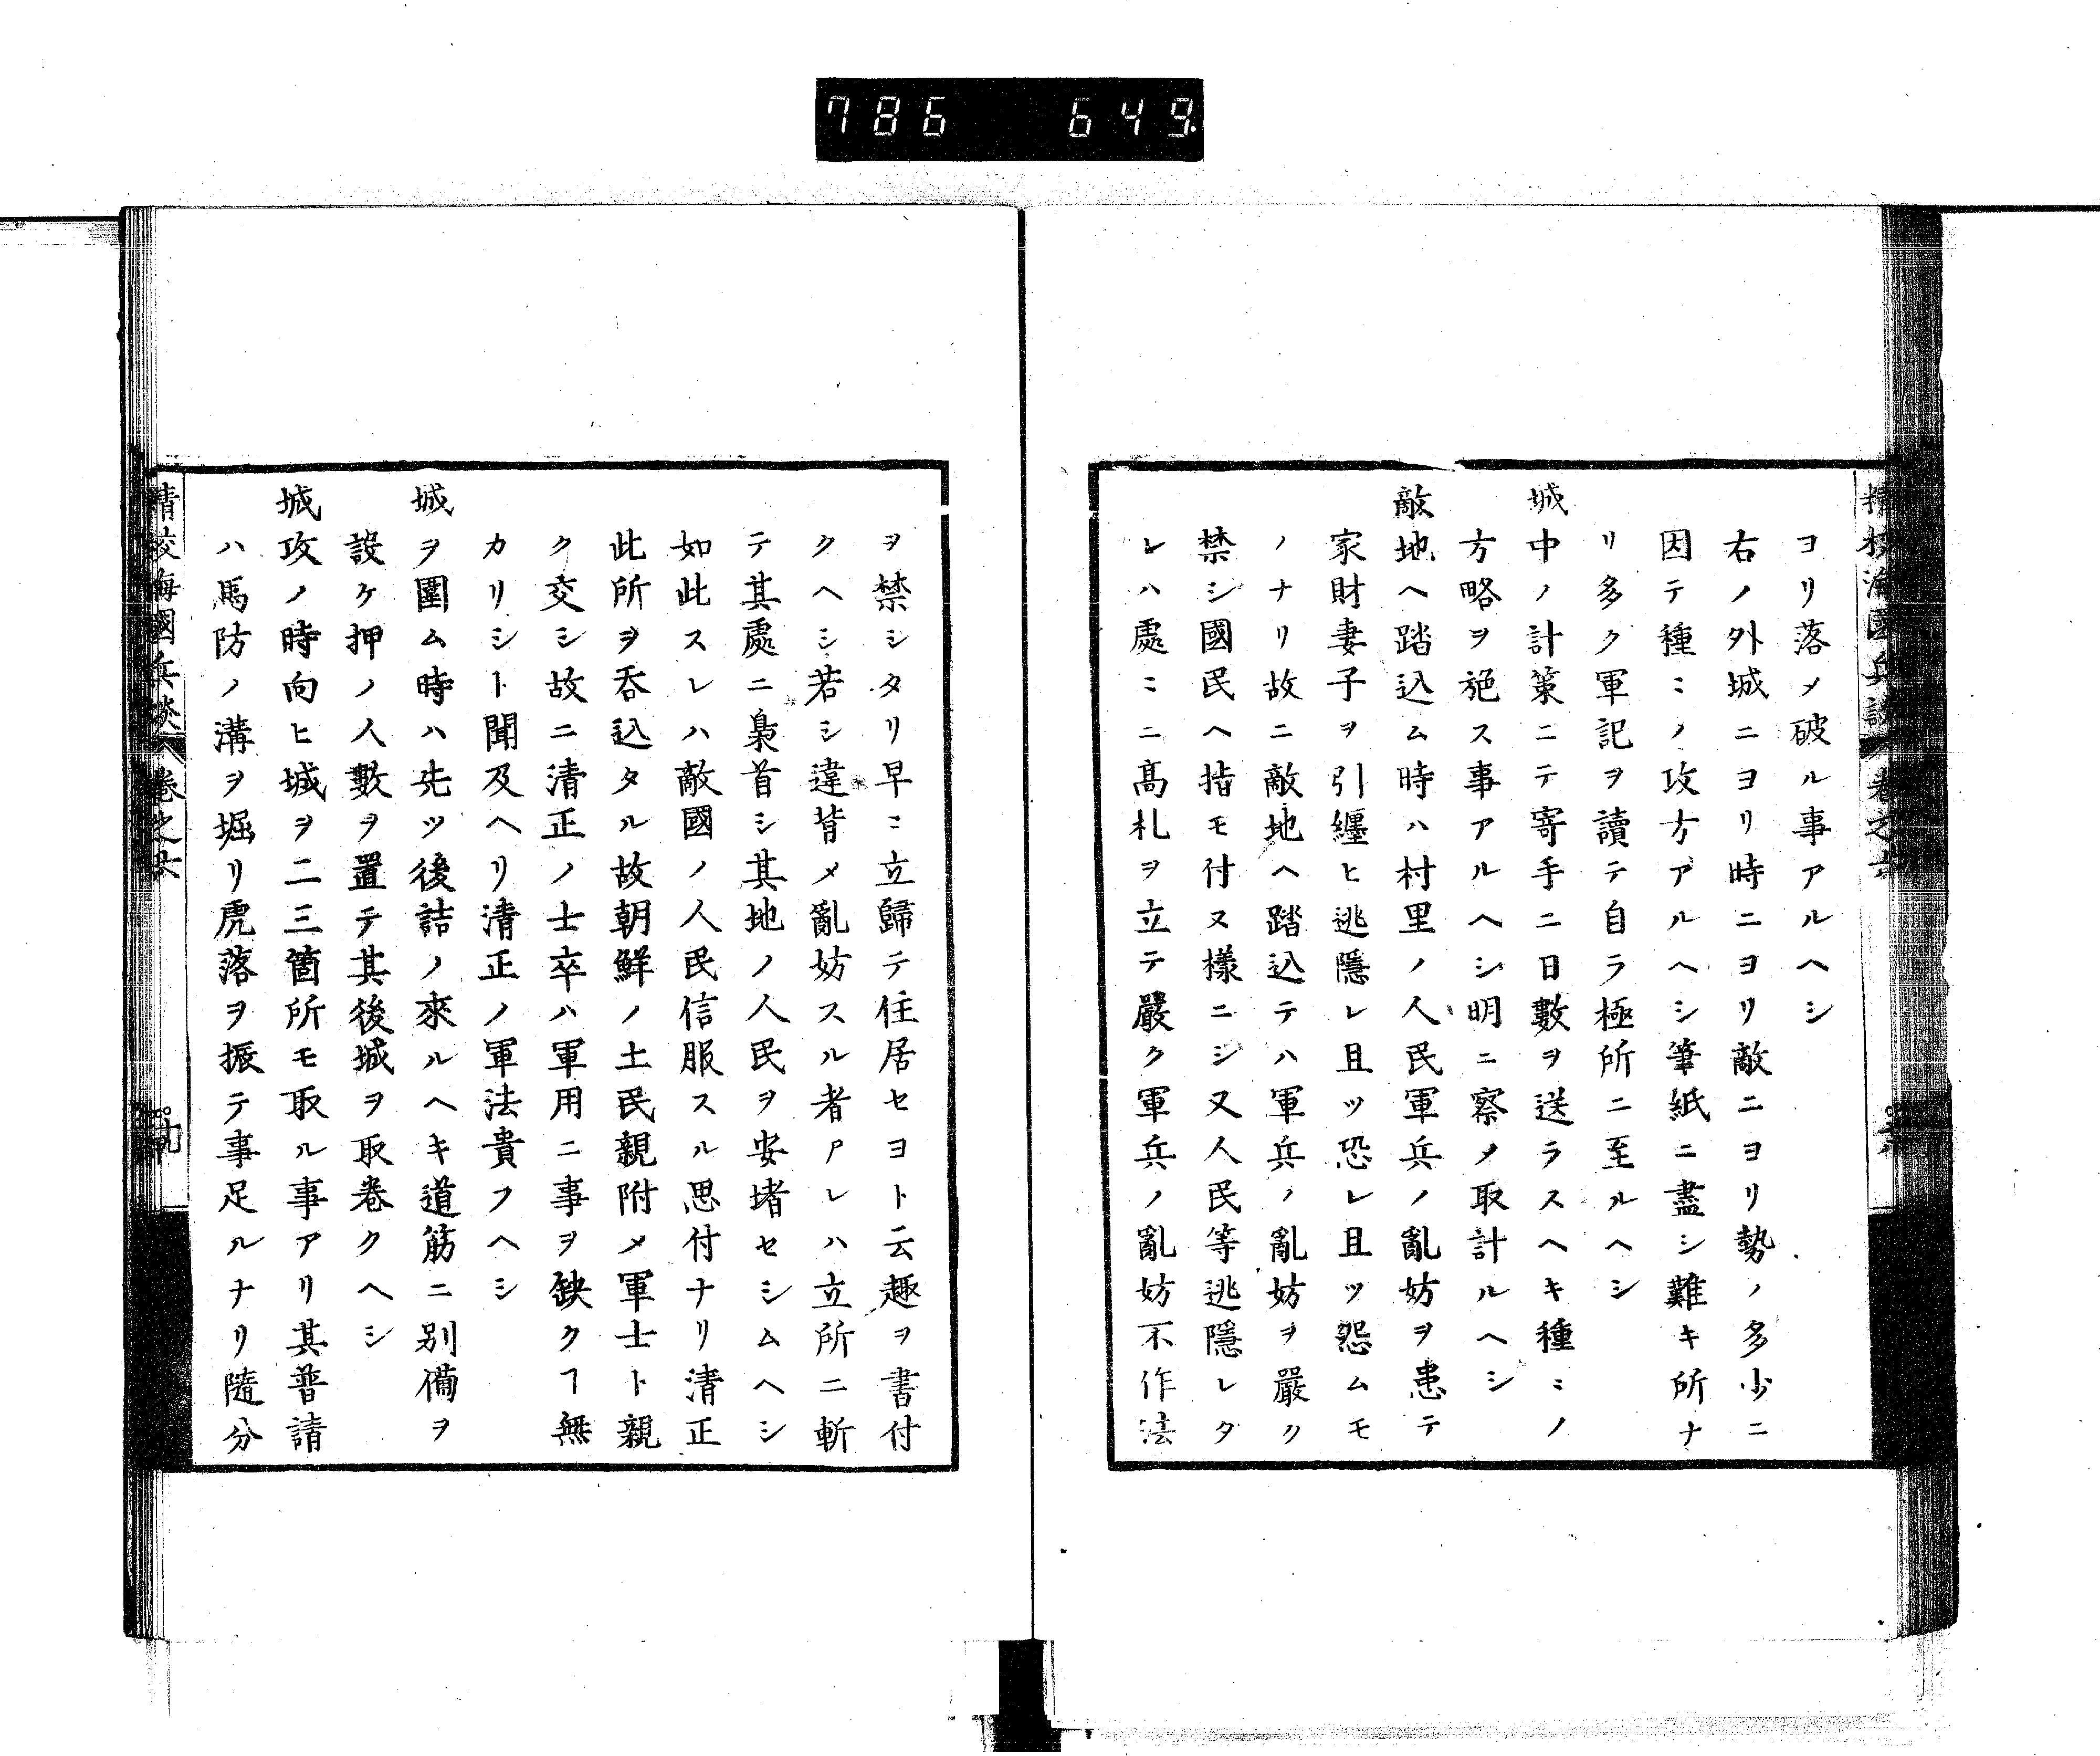 786 649
ヨリ落メ破ル事アルヘシ
右ノ外城ニヨリ時ニヨリ敵ニヨリ勢ノ多少ニ
因テ種ミノ攻方アルヘシ筆紙ニ盡シ難キ所ナ
リ多ク軍記ヲ讀テ自ラ極所ニ至ルヘシ
城中ノ計策ニテ寄手ニ日數ヲ送ラスヘキ種ミノ
方略ヲ施ス事アルヘシ明ニ察メ取計ルヘシ
敵地ヘ踏込ム時ハ村里ノ人民軍兵ノ亂妨ヲ患テ
家財妻子ヲ引纏ヒ逃隱レ且ツ恐レ且ツ怨ムモ
ノナリ故ニ敵地ヘ踏込テハ軍兵ノ亂妨ヲ嚴ク
禁シ國民ヘ指モ付ヌ樣ニシ又人民等逃隱レタ
レハ處ミニ高札ヲ立テ嚴ク軍兵ノ亂妨不作法
ヲ禁シタリ早ミ立歸テ住居セヨト云趣ヲ書付
クヘシ若シ違背メ亂妨スル者アレハ立所ニ斬
テ其處ニ梟首シ其地ノ人民ヲ安堵セシムヘシ
如此スレハ敵國ノ人民信服スル思付ナリ清正
此所ヲ呑込タル故朝鮮ノ土民親附メ軍士ト親
ク交シ故ニ清正ノ士卒ハ軍用ニ事ヲ缺クヿ無
カリシト聞及ヘリ清正ノ軍法貴フヘシ
城ヲ圍ム時ハ先ツ後詰ノ來ルヘキ道筋ニ別備ヲ
設ケ押ノ人數ヲ置テ其後城ヲ取巻クヘシ
城攻ノ時向ヒ城ヲ二三箇所モ取ル事アリ其普請
ハ馬防ノ溝ヲ堀リ虎落ヲ振テ事足ルナリ隨分
精校海國兵談 卷之六